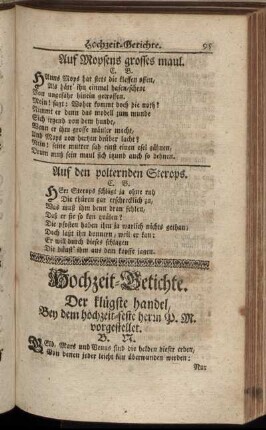 Hochzeit-Getichte. 95
Auf Mopsens grosses maul.
C. E.
HAnns Mops hat stets die kieffen offen,
Als hätt' ihn einmal hasen-schrot
Von ungefähr hinein getroffen.
Mein! sagt: Woher kommt doch die noth?
Nimmt er denn das modell zum munde
Sich irgend von dem hunde,
Wenn er ihm grosse mäuler macht,
Und Mops von hertzen drüber lacht?
Nein! seine mutter sah einst einen esel gähnen,
Drum muß sein maul sich itzund auch so dehnen.
Auf den polternden Sterops.
C. E.
HErr Sterops schlägt ja ohne ruh
Die thüren gar erschrecklich zu,
Was muß ihm denn dran fehlen,
Daß er sie so kan
Die pfosten haben ihm ja warlich nichts gethan:
Doch laßt ihn donnern, weil er kan:
Er will durch dieses schlagen
Die aus dem kopffe jagen.
Hochzeit-Getichte.
Der klügste handel,
Bey dem hochzeit-feste herrn P. M.
vorgestellet.
B. N.
GEld, Mars und Venus sind die helden dieser erden,
Von denen jeder leicht kan überwunden werden:
Nur